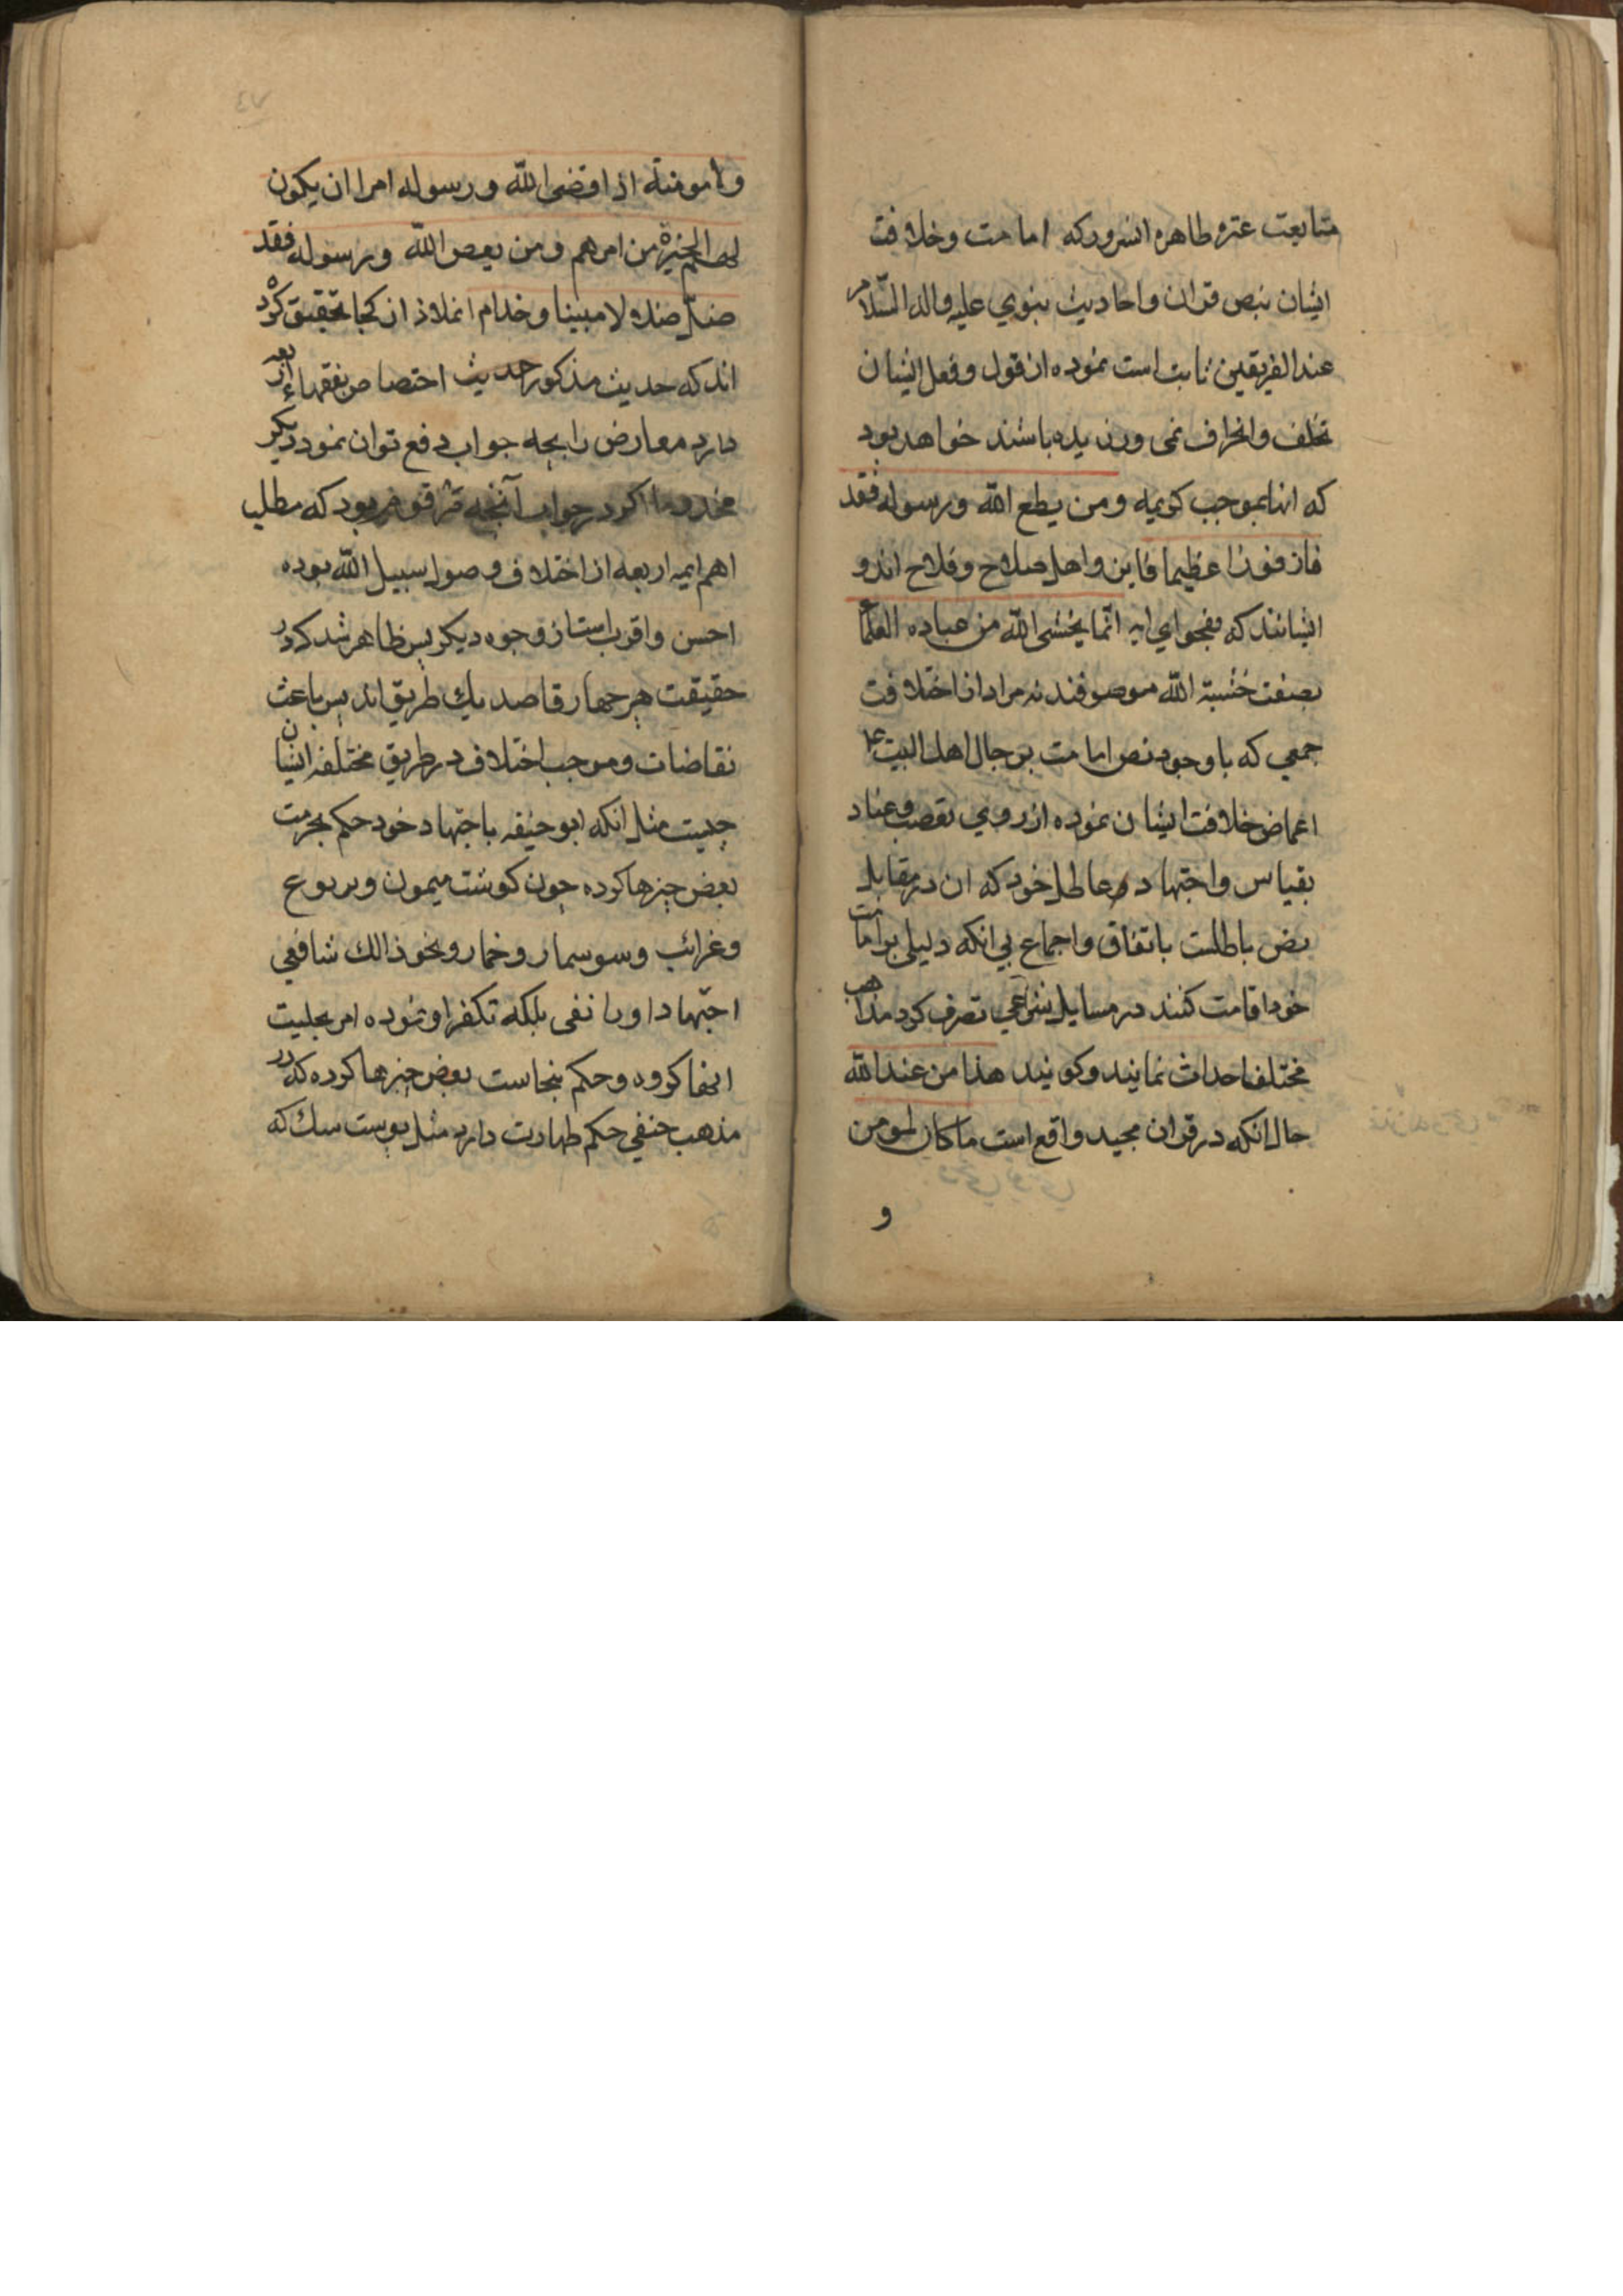 متابعت عتره طاهره انسرور که امامت وخلافت
ایشان بنص قران واحادیث نبوي علیه واله السّلام
عند الفریقین ثابت است نموده از قول وفعل ایشان
تخلف وانحراف نمی ورزیده باشند خواهد بود
که انها بموجب کریمه ومن یطع اللّه ورسوله فقد
فاز فوزا عظیما فایز واهل صلاح وفلاح اند و
ایشانند که بفحوای ایه انّما یخشی اللّه من عباده العلما
بصفت خشیة اللّه موصوفند نه مراد از اختلافت
جمعی که با وجود نص امامت بر جال اهل البیت ع
اغماض خلافت ایشان نموده از روي تعصب وعناد
بقیاس واجتهاد خود که ان در مقابل
نص باطلست باتفاق واجماع بي انکه دلیلی بر امامت
خود اقامت کنند در مسایل شرعي تصرف کرد مذاهب
مختلف احداث نمایند وکویند هذا من عند اللّه
حال انکه در قران مجید واقع است ما کان لمومن
و
ولا مومنة اذا قضی اللّه ورسوله امرا ان یکون
لهم الخیرة من امرهم ومن یعص اللّه ورسوله فقد
ضلّ ضلالا مبینا وخدام از کجا تحقیق کرده
اند که حدیث مذکور حدیث اختصاص بفقهاء اربعه
دارد معارض را بچه جواب دفع توان نمود دیکر
مخدوما اکر در جواب آنچه فرمود که مطلب
اهم ایمه اربعه از اختلاف وصول سبیل اللّه بوده
احسن واقرب است از وجوه دیکر پس ظاهر شد که در
حقیقت هر چهار قاصد یك طریق اند پس باعث
نقاضات وموجب اختلاف در طریق مختلفه ایشان
چیست مثل انکه ابو حنیفه باجتهاد خود حکم بحرمت
بعض چیزها کرده چون کوشت میمون ویربوع
وغرائب وسوسمار وخمار ونحو ذالك شافعي
اجتهاد او را نفی بلکه تکفر او نموده امر بحلیت
انها کرده وحکم بنجاست بعض چیزها کرده که در
مذهب حنفي حکم طهارت دارد مثل پوست سك که